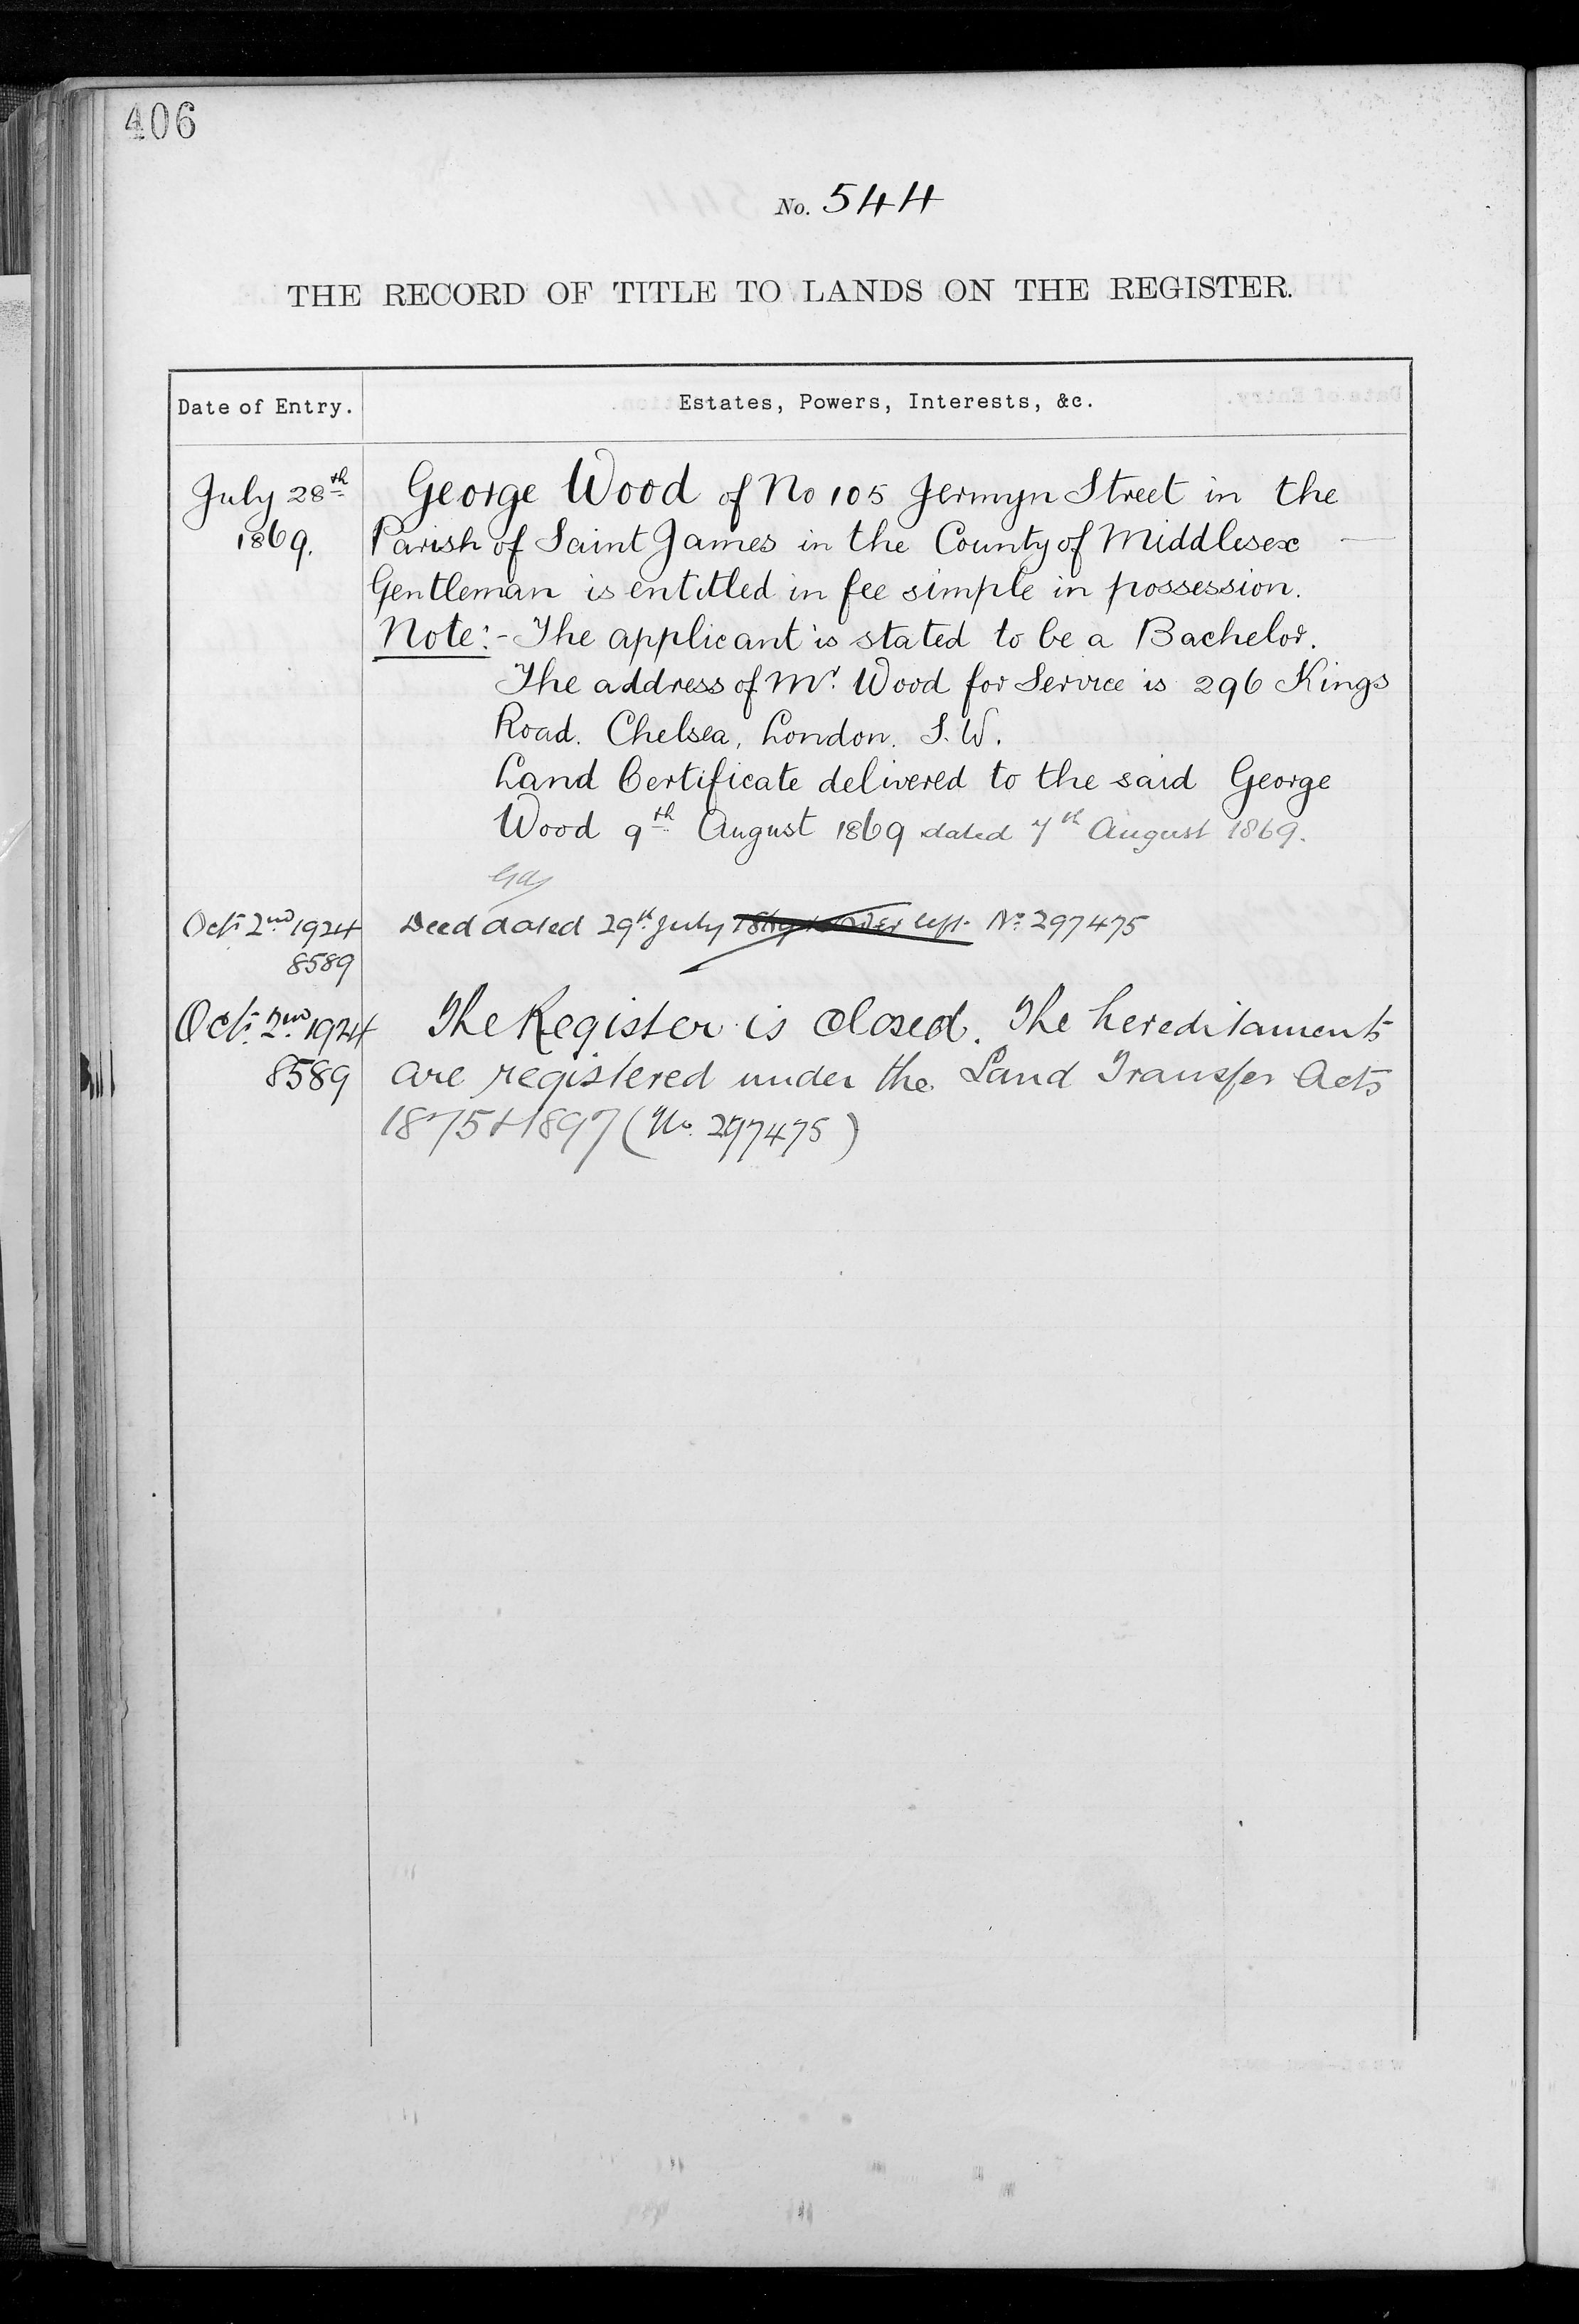 406
No. 544
THE RECORD OF TITLE TO LANDS ON THE REGISTER.
Date of Entry.
Estates, Powers, Interests, &c.
July 28th
1869.
George Wood of No 105 Jermyn Street in the
Parish of Saint James in the County of Middlesex —
Gentleman is entitled in fee simple in possession.
Note:- The applicant is stated to be a Bachelor.
The address of Mr. Wood for Service is 296 Kings
Road. Chelsea, London. S.W.
Land Certificate delivered to the said George
Wood 9th August 1869 dated 7th August 1869.
Oct. 2nd 1924
8589
Deed dated 29th July No. 297475
Oct. 2nd 1924
8589
The Register is closed. The hereditaments
are registered under the Land Transfer Acts
1875 & 1897 (No. 297475)